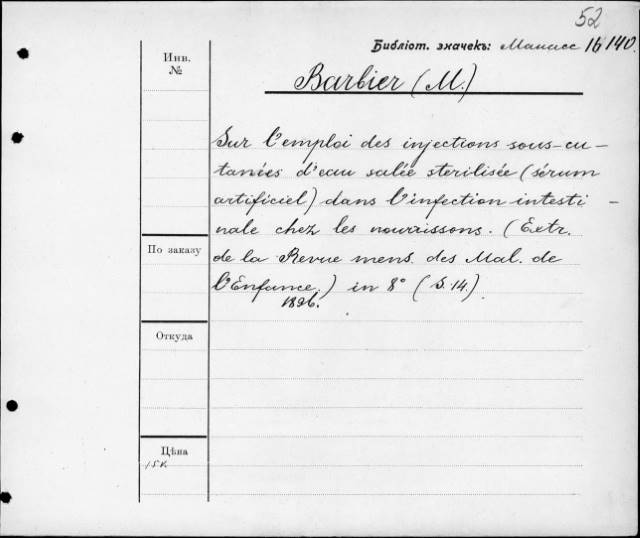 52
Библіот. значекъ: Манасс 16140.
Инв.
№
Barbier (M.)
Sur l'emploi des injections sous-cu-
tanées d'eau salée sterilisée (sérum
artificiel) dans l'infection intesti-
nale chez les nourrissons. (Extr.
По заказу
de la Revue mens. des Mal. de
l'Enfance.) in 8° (S. 14.)
1896.
Откуда
Цѣна
15 к.